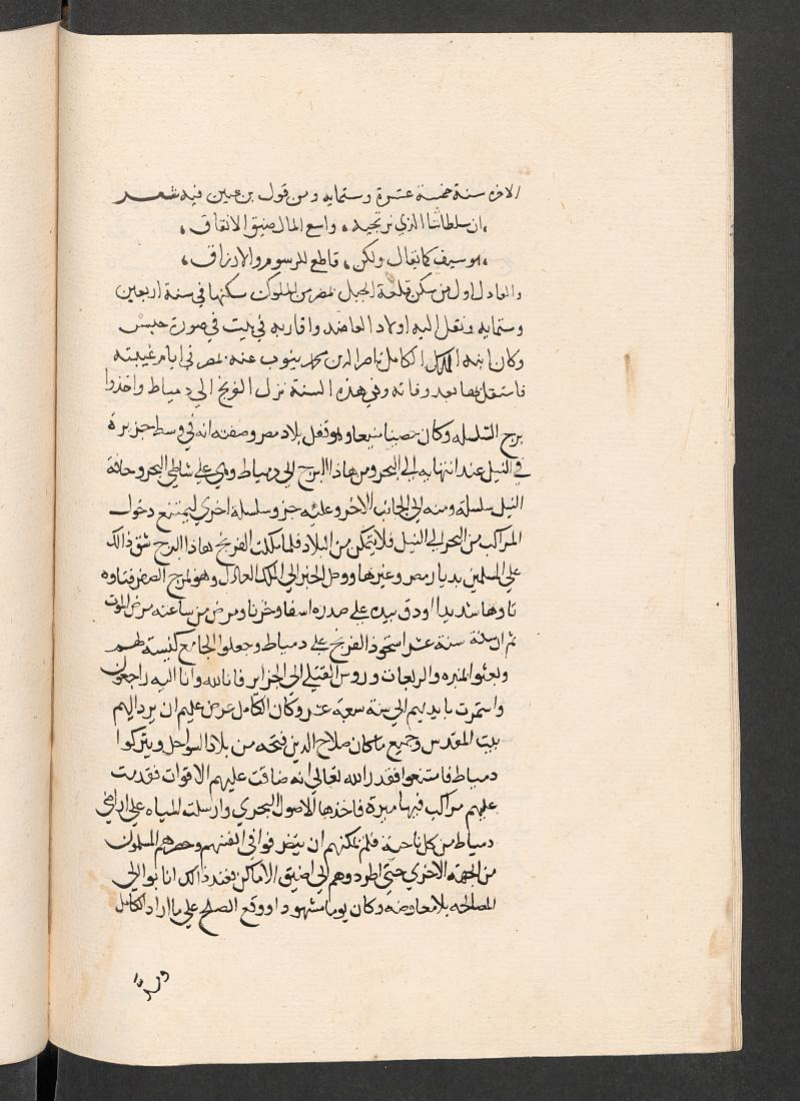 الاخره سنة خمسة عشرة وستمايه ومن قول بن عنين فيه شعر
ان سلطاننا الذي نرتجيه، واسع المال ضيق الانفاق،
هو سيف كما يقال ولكن، قاطع للرسوم والارزاق،
والعادل اول من سكن قلعة الجبل بمصر من الملوك سكنها في سنة اربعين
وستمايه ونقل اليه اولاد العاضد واقاربه في بيت في صورة حبس
وكان ابنه الملك الكامل ناصر الدين محمد ينوب عنه بمصر في ايام غيبته
فاستقل بها بعد وفاته وفي هذه السنة نزل الفرنج الي دمياط واخذوا
برج السلسله وكان حصينا منيعا وهو قفل بلاد مصر وصفته انه في وسط جزيرة
في النيل عند انتهايه الي البحر ومن هاذا البرج الي دمياط وهي علي شاطي البحر وحافة
النيل سلسلة ومنه الي الجانب الاخر وعليه جز وسلسلة اخري ليمتنع دخول
المراكب من البحر الي النيل فلا يتمكن من البلاد فلما ملكت الفرنج هاذا البرج شق ذالك
علي المسلمين بديار مصر وغيرها ووصل الخبر الي الملك العادل وهو بمرج الصفر فتاوه
تاوها شديدا ودق بيده علي صدره اسفا وحزنا ومرض من ساعته مرض الموت
ثم ان سنة ستة عشر استحوذ الفرنج علي دمياط وجعلوا الجامع كنيسة لهم
وبعثوا المنبره والربعات وروس القتلي الي الجزاير فانا لله وانا اليه راجعون
واستمرت بايديهم الي سنة سبعة عشر وكان الكامل عرض عليهم ان يرد اليهم
بيت المقدس وجميع ما كان صلاح الدين فتحه من بلاد السواحل ويتركوا
دمياط فامتنعوا فقدر الله تعالي انه ضاقت عليهم الاقوات فقدمت
عليهم مراكب فيها ميرة فاخذها الاصول البحري وارسلت المياه علي اراضي
دمياط من كل ناحية فلم يمكنهم ان يتصرفوا في انفسهم وحصرهم المسلمون
من الجهة الاخري حتي اطردوهم الي اضيق الاماكن فعند ذالك انابوا الي
المصالحه بلا معاوضه وكان يوما مشهودا ووقع الصلح علي ما اراد الكامل